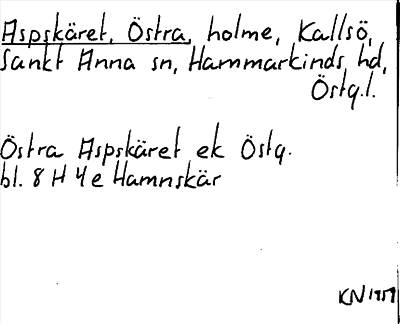 Aspskäret, Östra, holme, Kallsö,
Sankt Anna sn, Hammarkinds hd,
Östg.l.
Östra Aspskäret ek Östg.
bl. 8 H 4 e Hamnskär
KN 1957